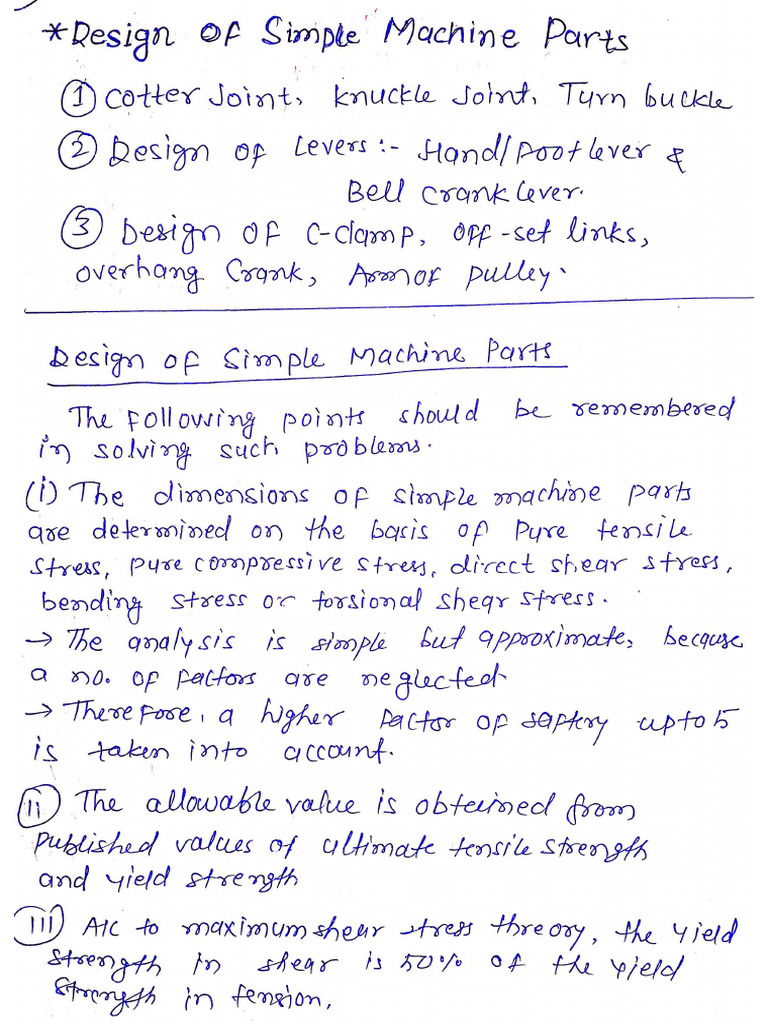 *Design OF Simple Machine Parts
① Cotter Joint, Knuckle Joint, Turn buckle
② Design of Levers :- Hand/Foot lever &
Bell Crank Lever.
③ Design OF C-clamp, Off-set links,
Overhang Crank, Arm of pulley.
Design of Simple Machine Parts
The Following points should be remembered
in solving such problems.
(i) The dimensions of simple machine parts
are determined on the basis of Pure tensile
stress, pure compressive stress, direct shear stress,
bending stress or torsional shear stress.
→ The analysis is simple but approximate, because
a no. of factors are neglected
→ Therefore, a higher factor of saftery upto 5
is taken into account.
(ii) The allowable value is obtained from
Published values of ultimate tensile strength
and yield strength
(iii) A/C to maximum shear stress threory, the yield
strength in shear is 50% of the yield
strength in tension.